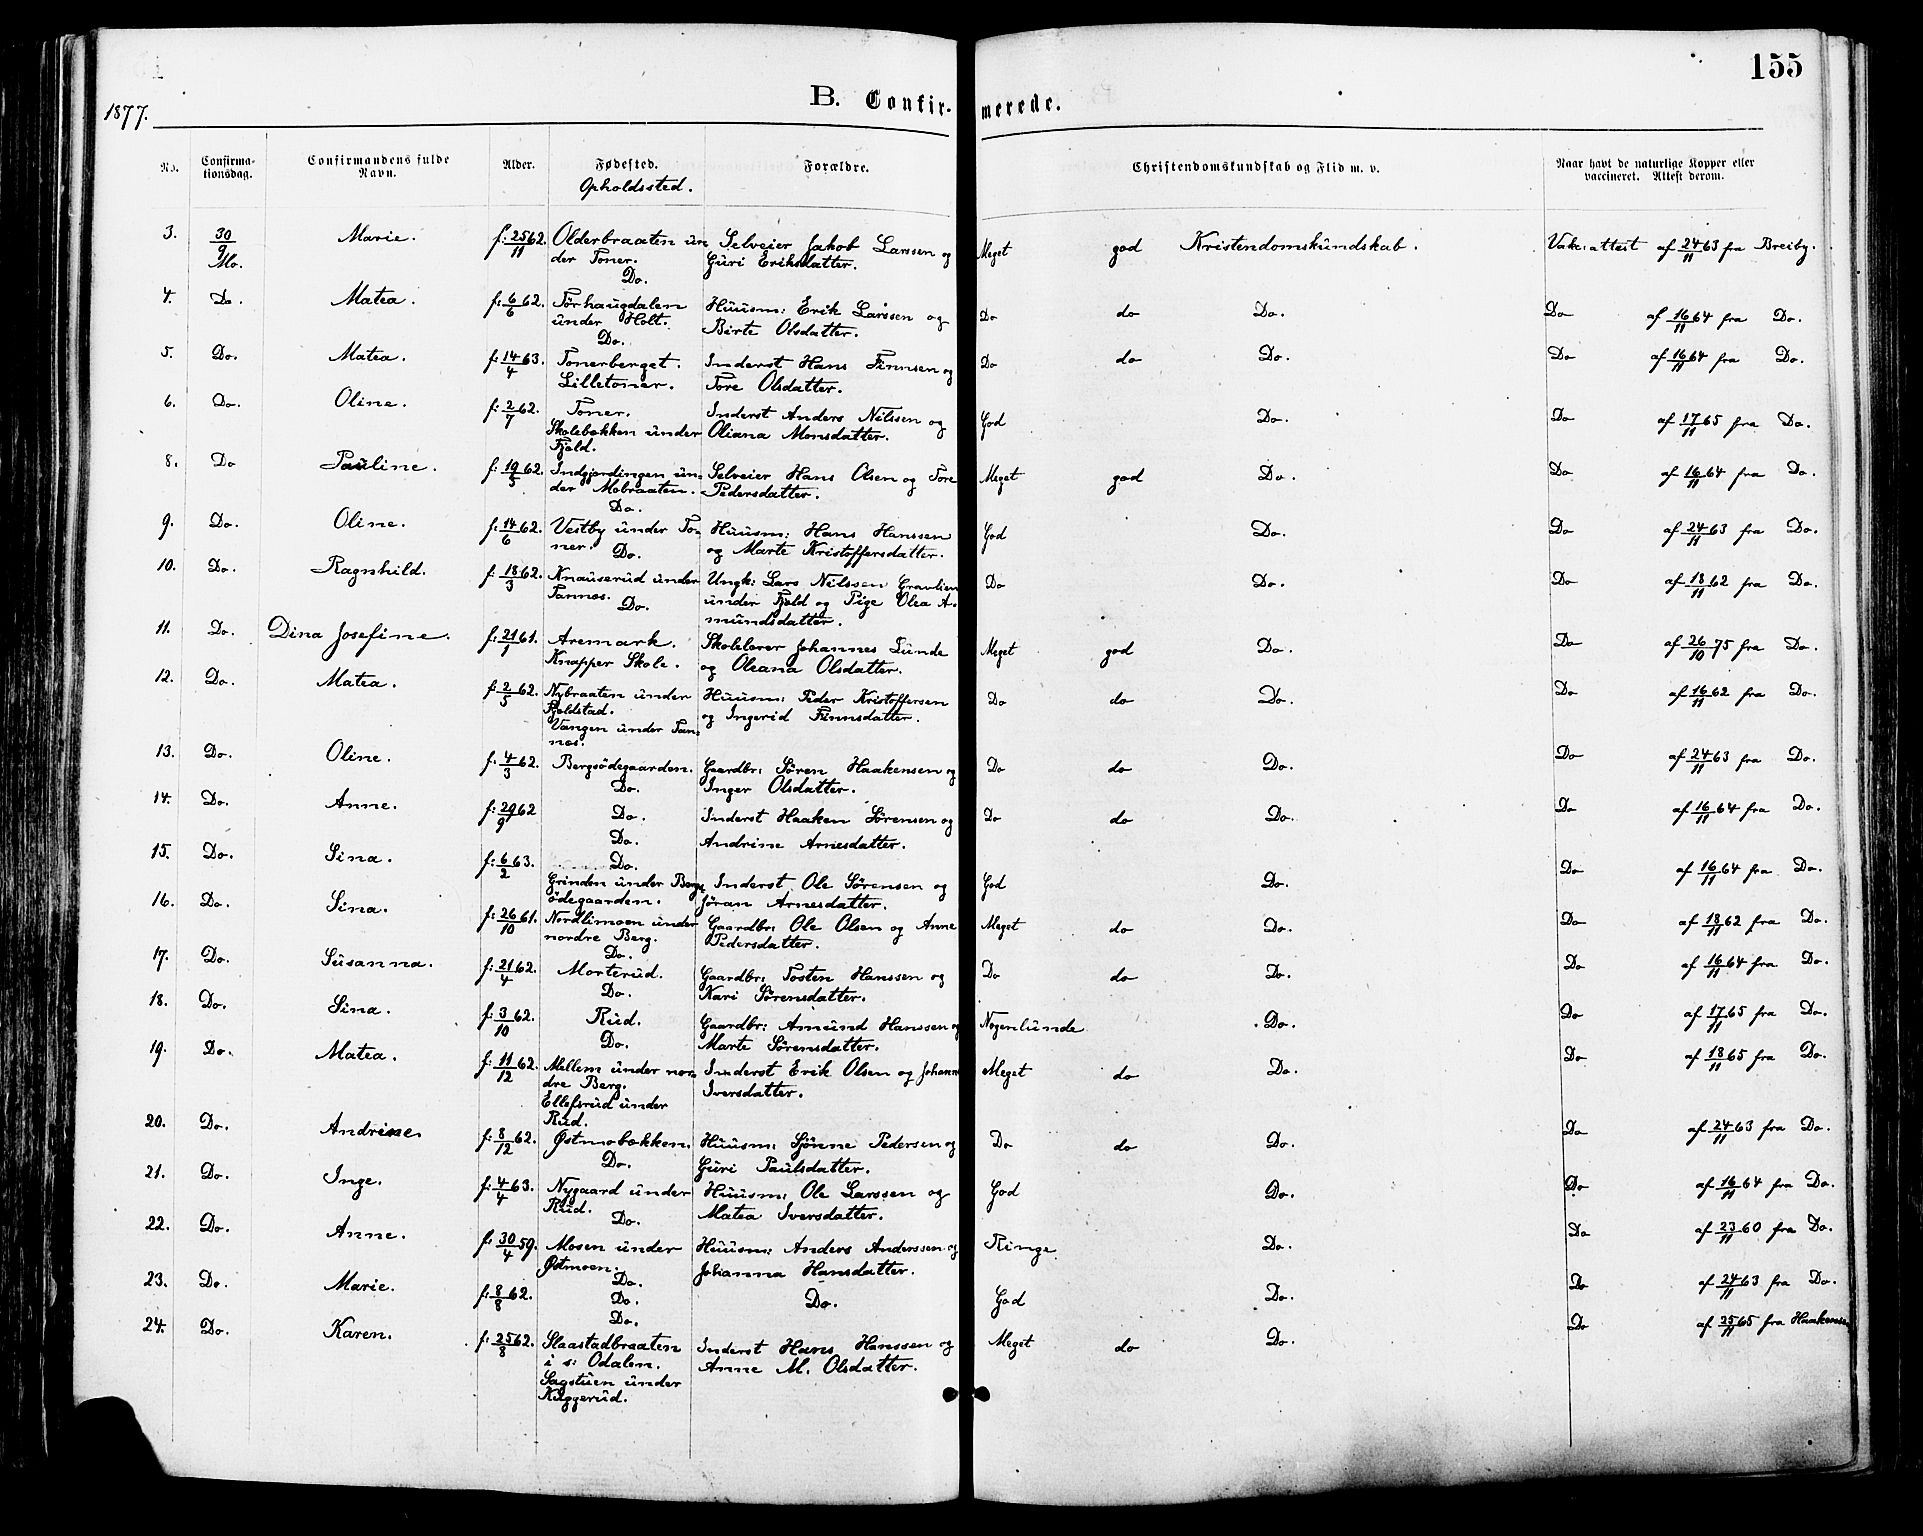 155
1877.
B. Confirmerede.
No. Confirmationsdag. Confirmandens fulde Navn. Alder. Fødested. Forældre. Christendomskundskab og Flid m. v. Naar havt de naturlige Kopper eller vaccineret. Attest derom.
Opholdssted.
3. 30/9 Mo. Marie. f: 25/11 62. Olderbraaten un Selveier Jakob Larssen og Meget god Kristendomskundskab. Vak: attest af 24/11 63 fra Breiby.
der Toner. Guri Eriksdatter.
Do.
4. Do. Matea. f: 6/6 62. Tørhaugdalen Huusm: Erik Larssen og Do do Do. Do af 16/11 64 fra Do.
under Holt. Birte Olsdatter.
Do.
5. Do. Matea. f: 14/4 63. Tonerberget. Inderst Hans Finnsen og Do do Do. Do af 16/11 64 fra Do.
Lilletoner. Tore Olsdatter.
6. Do. Oline. f: 2/7 62. Toner. Inderst Anders Nilssen og God Do. Do af 17/11 65 fra Do.
Skolebækken under Oliana Monsdatter.
Fjeld.
8. Do Pauline. f: 19/5 62. Indgjerdingen un- Selveier Hans Olsen og Tore Meget god Do. Do af 16/11 64 fra Do.
der Mobraaten. Pedersdatter.
Do.
9. Do. Oline. f: 14/6 62. Vestby under To- Huusm: Hans Hanssen God Do. Do af 24/11 63 fra Do.
ner. og Marte Kristoffersdatter.
Do.
10. Do. Ragnhild. f. 18/3 62. Knauserud under Ungk: Lars Nilssen Gravlien Do Do. Do af 18/11 62 fra Do.
Tannes. under Fjeld og Pige Olea A-
Do. mundsdatter.
11. Do. Dina Josefine. f: 21/1 61. Aremark. Skolelærer Johannes Lunde Meget god Do. Do af 26/10 75 fra Do.
Knapper Skole. og Oleana Olsdatter.
12. Do. Matea. f: 2/5 62. Nybraaten under Huusm: Peder Kristoffersen Do do Do. Do af 16/11 62 fra Do.
Fjeldstad. og Ingerid Finnsdatter.
Vangen under Tan-
nes.
13. Do. Oline. f: 4/3 62. Bergsödegaarden. Gaardbr: Sören Haakensen og Do do Do. Do af 24/11 63 fra Do.
Do. Inger Olsdatter.
14. Do. Anne. f: 29/9 62 Do. Inderst Haaken Sörensen og Do do Do. Do af 16/11 64 fra Do.
Do. Andrine Arnesdatter.
15. Do. Sina. f: 6/2 63. Do. Inderst Ole Sörensen og God Do. Do af 16/11 64 fra Do.
Grinden under Bergs Jöran Arnesdatter.
ödegaarden.
16. Do. Sina. f: 26/10 61. Nordlimoen under Gaardbr: Ole Olsen og Anne Meget do Do. Do af 18/11 62 fra Do.
nordre Berg. Pedersdatter.
Do.
17. Do. Susanna. f: 21/4 62. Morterud. Gaardbr: Tosten Hanssen og Do do Do. Do af 16/11 64 fra Do.
Do. Kari Sörensdatter.
18. Do. Sina. f: 3/10 62. Rud. Gaardbr: Amund Hanssen og Nogenlunde Do. Do af 17/11 65 fra Do.
Do. Marte Sörensdatter.
19. Do. Matea. f: 11/12 62. Mellem under nor- Inderst Erik Olsen og Johann Meget do Do. Do af 18/11 65 fra Do.
dre Berg. Iversdatter.
Ellefsrud under
Rud.
20. Do. Andrine. f: 8/12 62. Østmobækken. Huusm: Sjönne Pedersen og Do do Do. Do af 24/11 63 fra Do.
Do. Guri Paulsdatter.
21. Do. Inge. f: 4/4 63. Nygaard under Huusm: Ole Larssen og God Do. Do af 16/11 64 fra Do.
Rud. Matea Iversdatter.
Do.
22. Do. Anne. f: 30/4 59. Mosen under Huusm: Anders Anderssen og Ringe Do. Do af 23/11 60 fra Do.
Østmoen. Johanna Hansdatter.
Do.
23. Do. Marie. f: 8/8 62. Do. Do. God Do. Do af 24/11 63 fra Do.
Do.
24. Do. Karen. f: 25/8 62. Slaastadbraaten Inderst Hans Hanssen og Meget do Do. Do af 25/11 65 fra Haakensen
i s: Odalen. Anne M. Olsdatter.
Sagstuen under
Kuggerud.